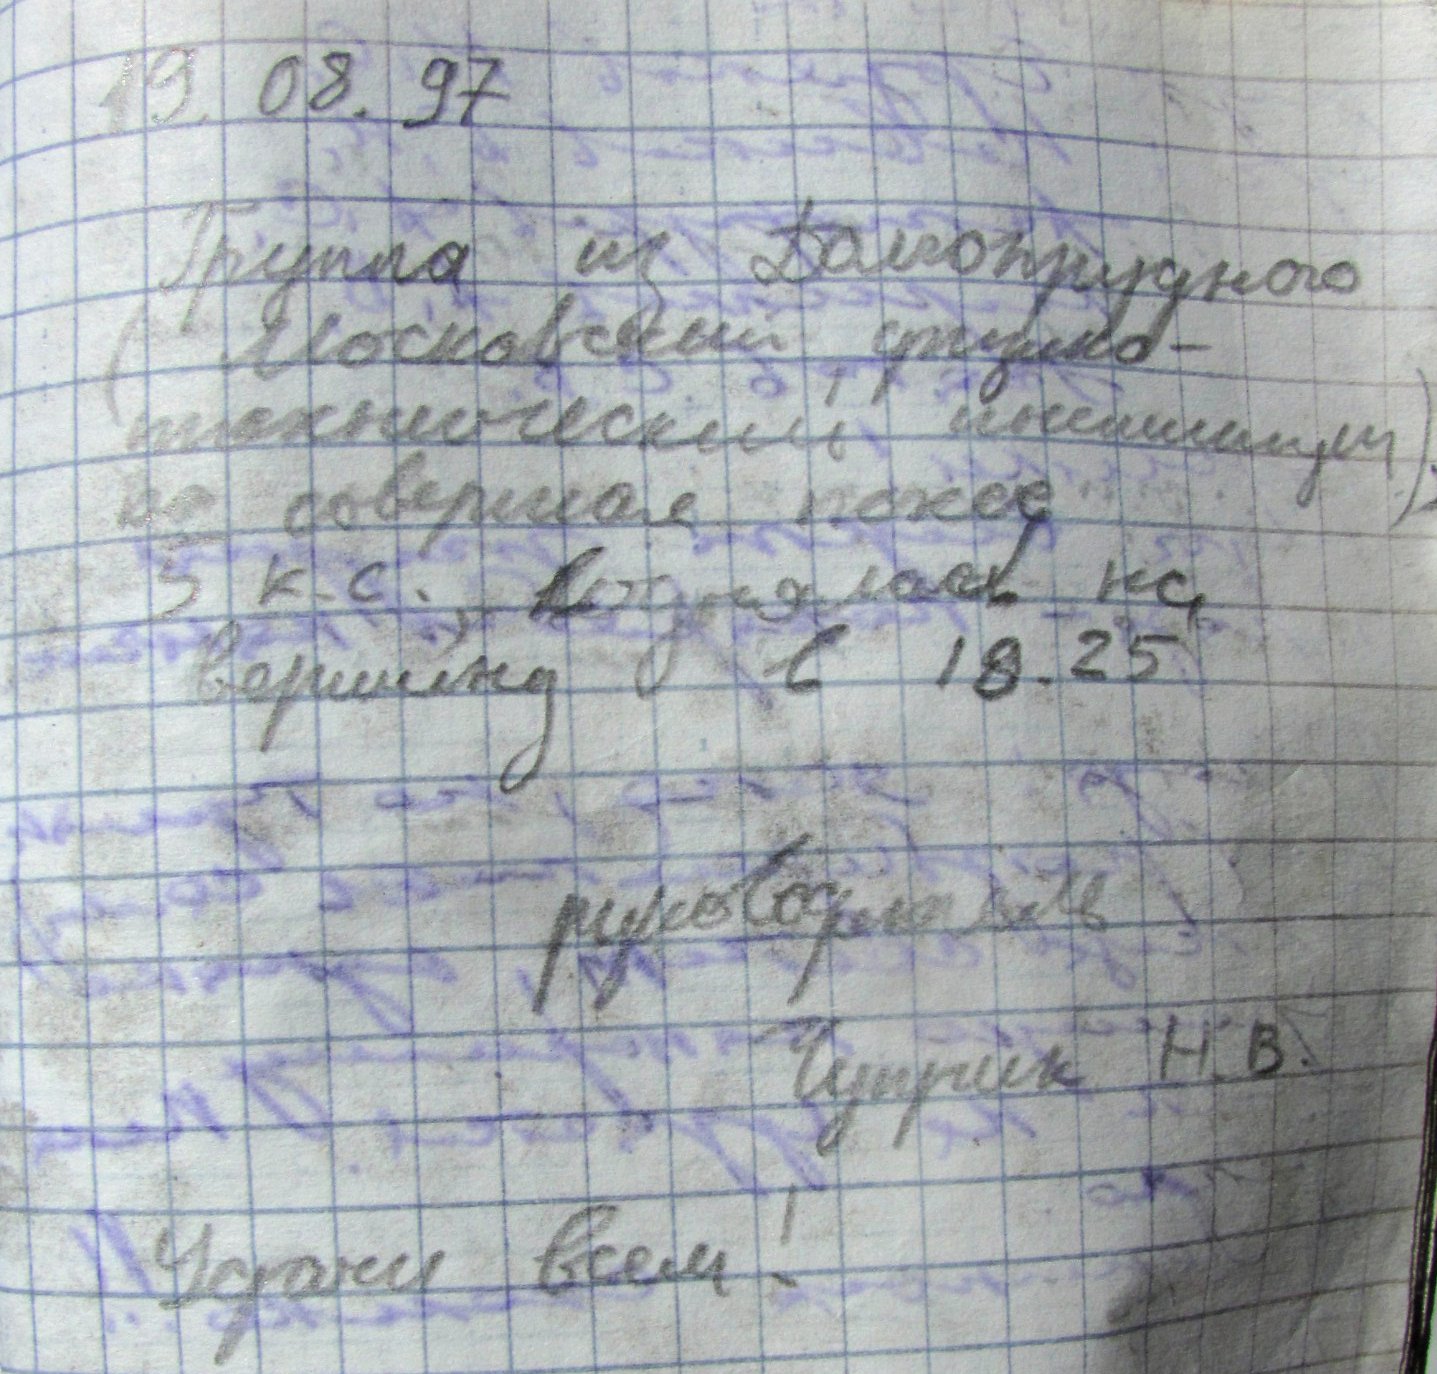 19. 08. 97
Группа из Долгопрудного
(Московский физико-
технический институт),
совершая поход
5 к.с., поднялась на
вершину в 18.25
руководитель
Чуприк Н.В.
Удачи всем!